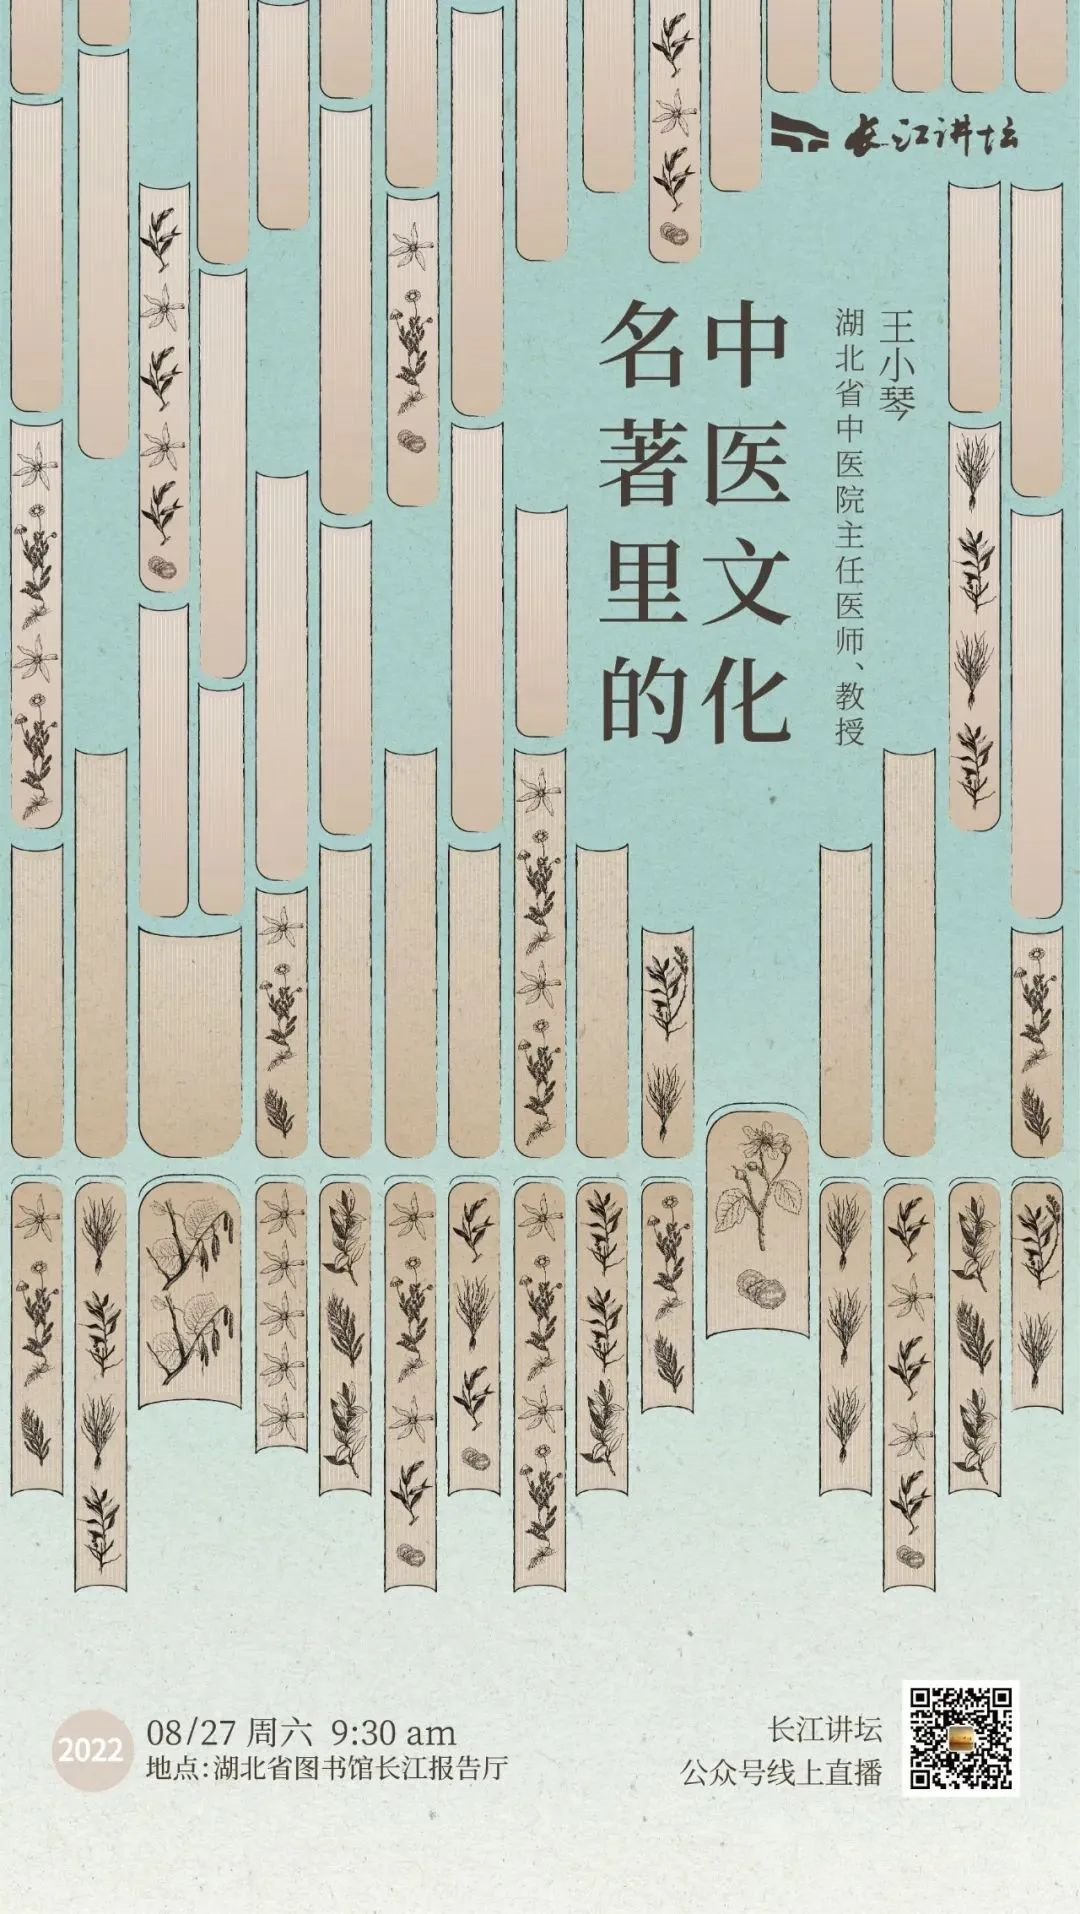 长江讲坛
王小琴
湖北省中医院主任医师、教授
中医文化
名著里的
2022
08/27 周六 9:30 am
地点:湖北省图书馆长江报告厅
长江讲坛
公众号线上直播